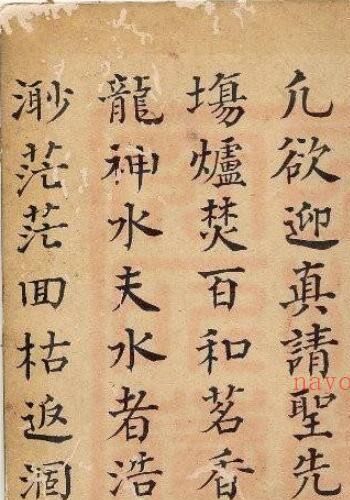 凢欲迎真請聖先
塲爐焚百和茗香
龍神水夫水者浩
渺茫茫囬枯返涸
nayo